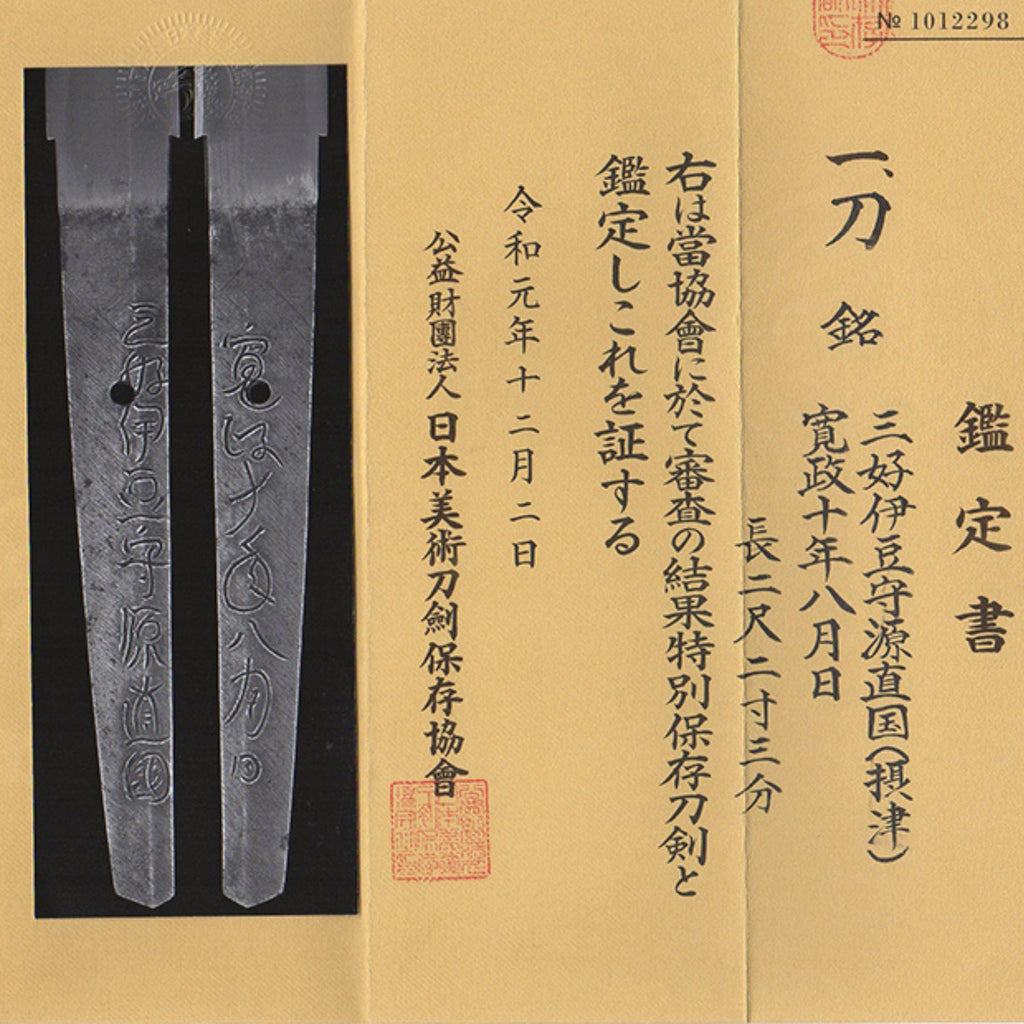 № 1012298
鑑定書
一、刀 銘
三好伊豆守源直国(摂津)
寛政十年八月日
長二尺二寸三分
右は當協會に於て審査の結果特別保存刀剣と
鑑定しこれを証する
令和元年十二月二日
公益財團法人日本美術刀劍保存協會
寛政十年八月日
三好伊豆守源直國